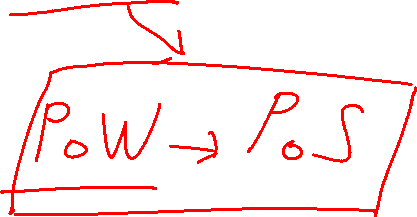 PoW → PoS